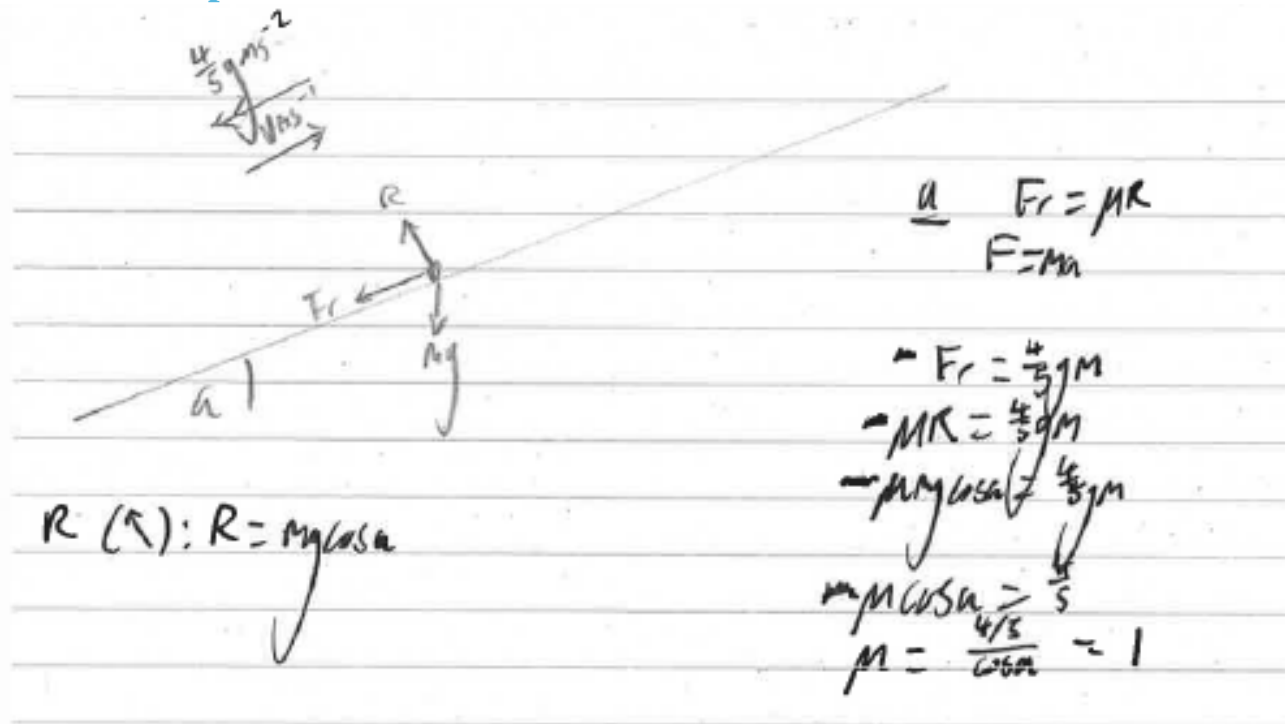 4/5 g ms⁻²
Vms⁻¹
R
Fr
mg
a
R (↖): R = mgcosa
a Fr = μR
F = ma
- Fr = 4/5 gm
- μR = 4/5 gm
- μmgcosa = 4/5 gm
- μcosa = 4/5
μ = (4/5)/cosa = 1